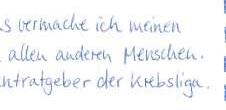 s vermache ich meinen
allen anderen Menschen.
ntratgeber der Krebsliga.